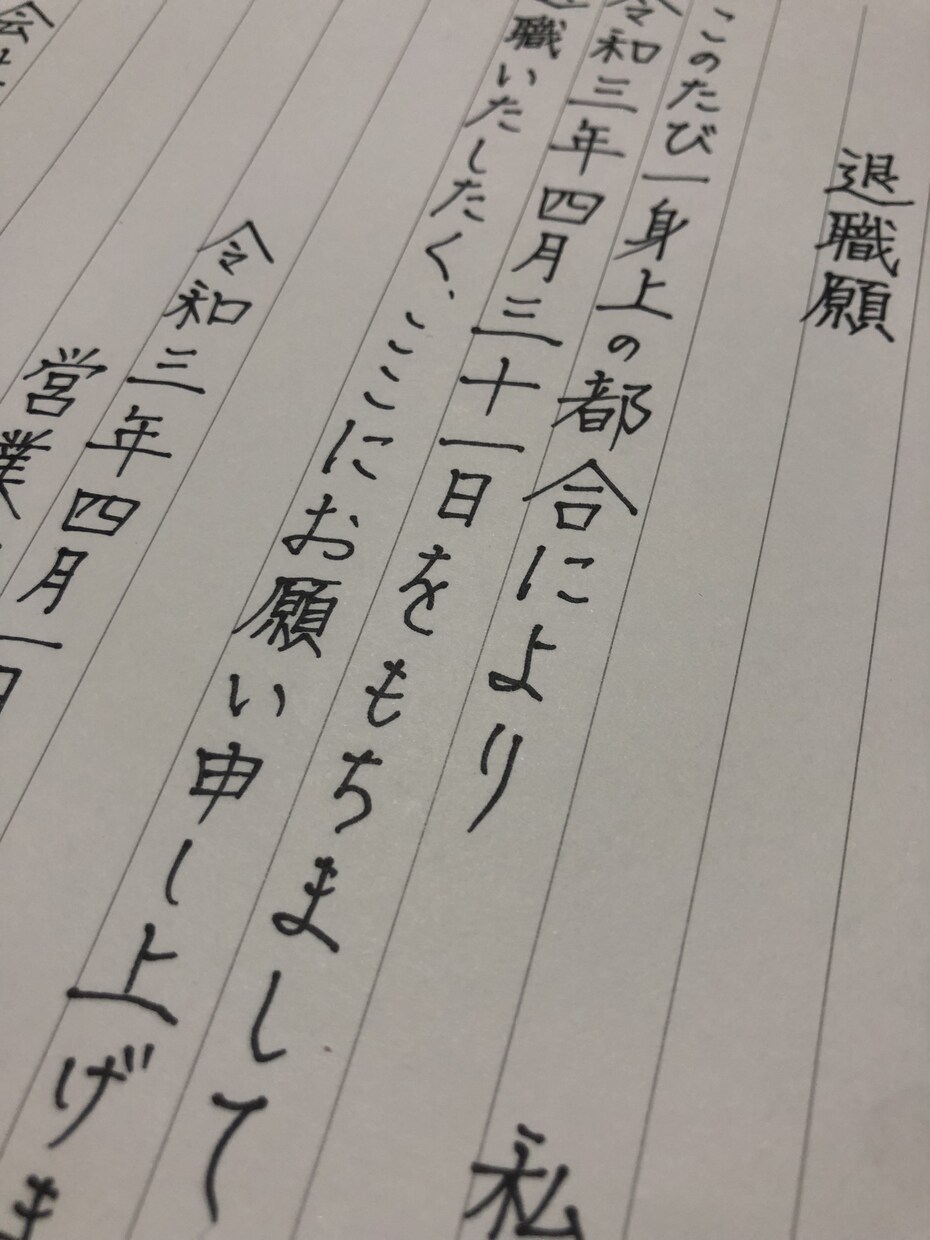 退職願
私
このたび一身上の都合により
令和三年四月三十一日をもちまして
退職いたしたく、ここにお願い申し上げま
令和三年四月一日
営業
会社